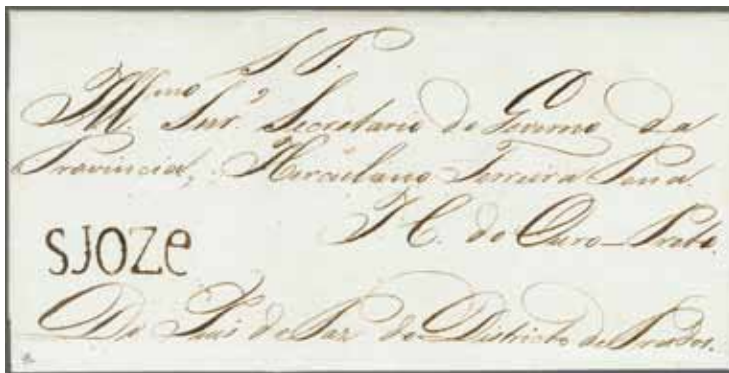 S P.
Illmo Snr. Secretario do Governo da
Provincia, Herculano Ferreira Pena
I C. do Ouro-Preto.
SJOZe
Do Juis de Paz do Districto de Prados.